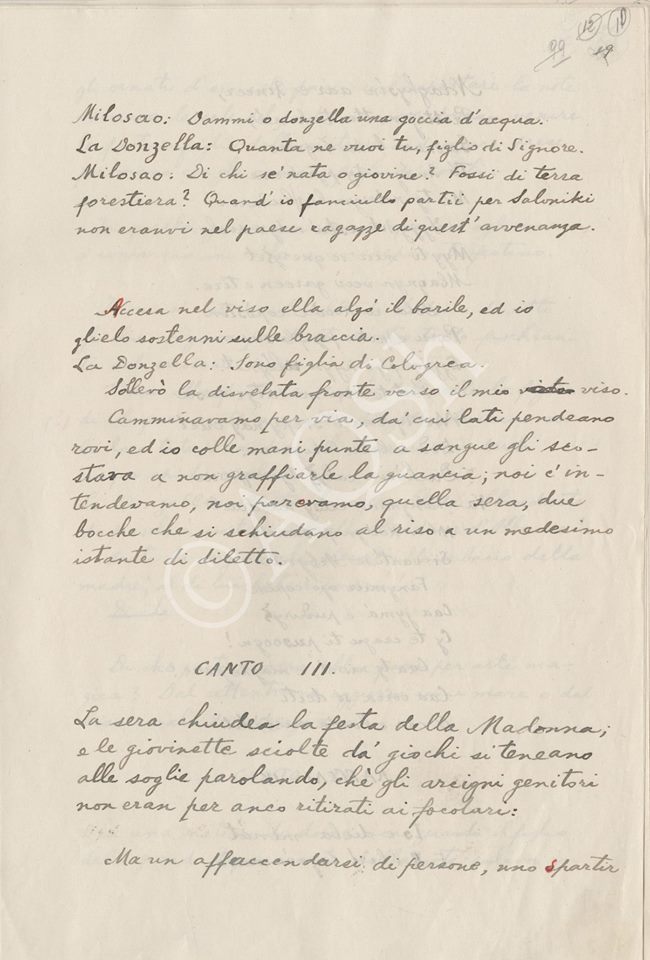 12 10
99 19
Milosao: Dammi o donzella una goccia d'acqua.
La Donzella: Quanta ne vuoi tu, figlio di Signore.
Milosao: Di chi se' nata o giovine? Fossi di terra
forestiera? Quand' io fanciullo partii per Saloniki
non eranvi nel paese ragazze di quest' avvenanza.
Accesa nel viso ella alzò il barile, ed io
glielo sostenni sulle braccia.
La Donzella: Sono figlia di Cologrea.
Sollevò la disvelata fronte verso il mio viso.
Camminavamo per via, da' cui lati pendeano
rovi, ed io colle mani punte a sangue gli sco-
stava a non graffiarle la guancia; noi c' in-
tendevamo, noi parevamo, quella sera, due
bocche che si schiudano al riso a un medesimo
istante di diletto.
CANTO III.
La sera chiudea la festa della Madonna;
e le giovinette sciolte da' giochi si teneano
alle soglie parolando, chè gli arcigni genitori
non eran per anco ritirati ai focolari:
Ma un affaccendarsi di persone, uno spartir